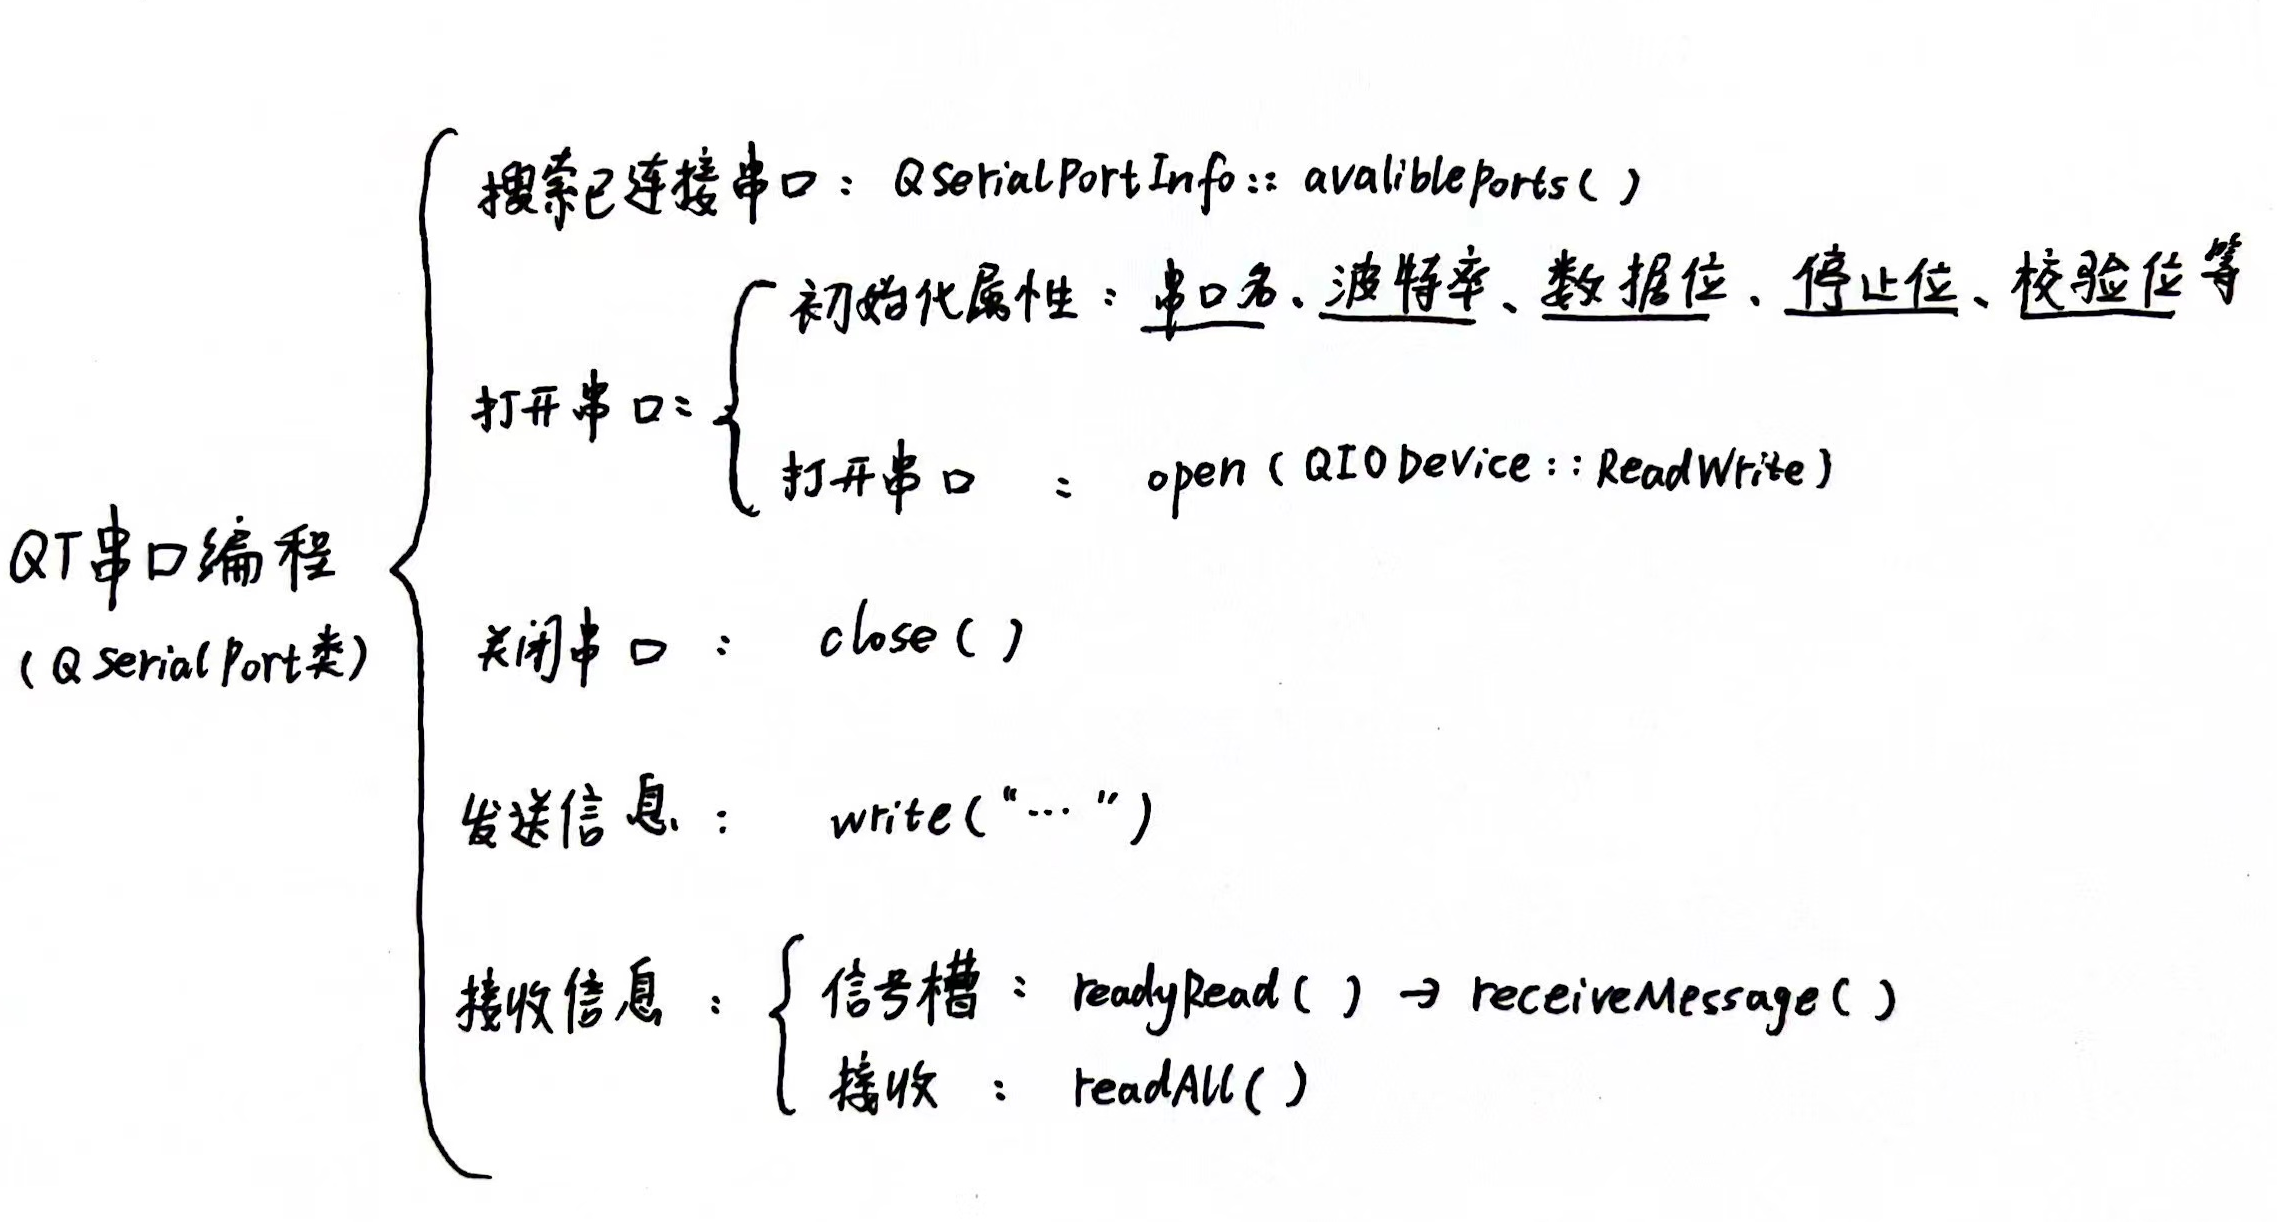 搜索已连接串口：QSerialPortInfo::avaliblePorts()
初始化属性：串口名、波特率、数据位、停止位、校验位等
打开串口：
打开串口：open(QIODevice::ReadWrite)
QT串口编程
(QSerialPort类)
关闭串口：close()
发送信息：write("…")
接收信息：
信号槽：readyRead() → receiveMessage()
接收：readAll()